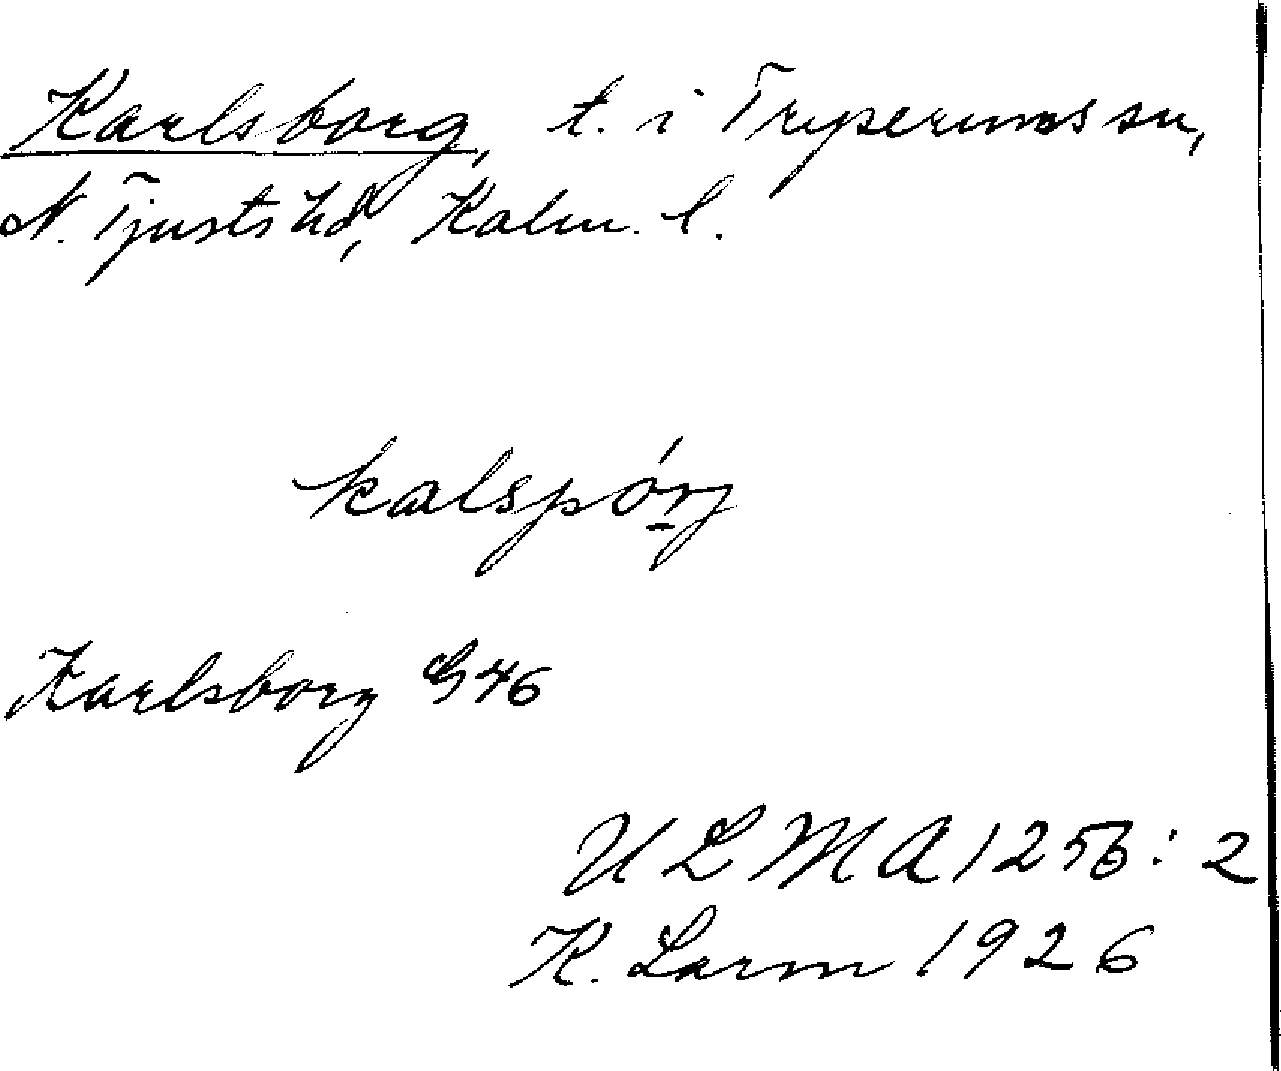 Karlsborg, t. i Tryserums sn,
N. Tjusts hd, Kalm. l.
kalspórj
Karlsborg G 46
ULMA 1256: 2
K. Larm 1926